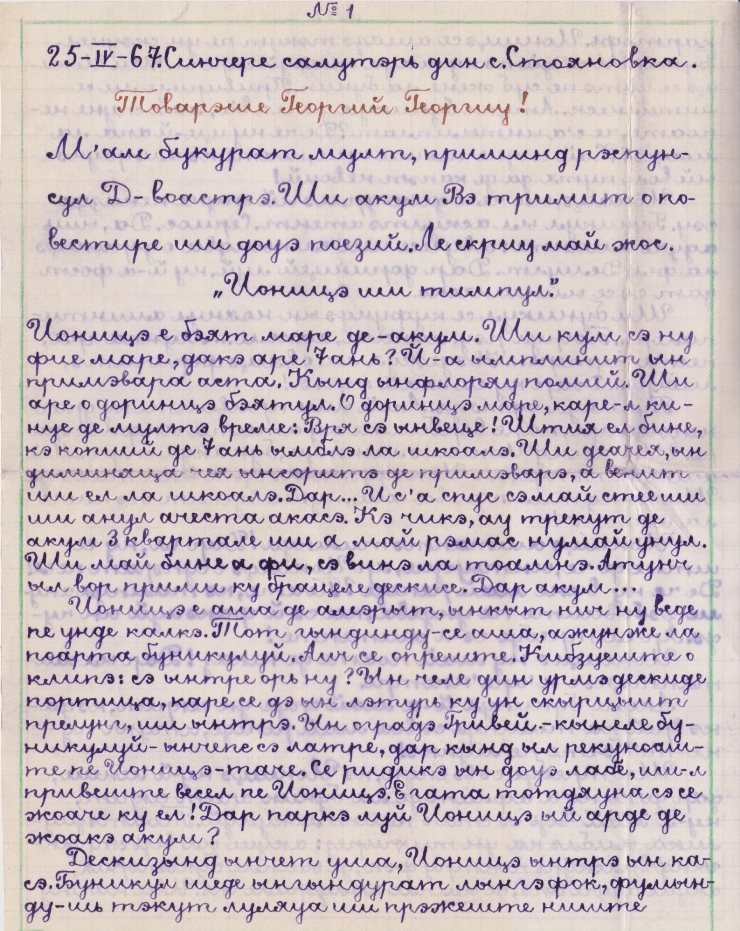 № 1
25-IV-67. Синчере салутэрь дин с. Стояновка.
Товарэше Георгий Георгиу!
М'ам букурат мулт, приминд рэспун-
сул Д-воастрэ. Ши акум Вэ тримит о по-
вестире ши доуэ поезий. Ле скриу май жос.
„Ионицэ ши тимпул."
Ионицэ е бэят маре де-акум. Ши кум сэ ну
фие маре, дакэ аре 7 ань? Й-а ымплинит ын
примэвара аста. Кынд ынфлоряу помий. Ши
аре о доринцэ бэятул. О доринцэ маре, каре-л ки-
нуе де мултэ време: Вря сэ ынвеце! Штия ел бине,
кэ копиий де 7 ань ымблэ ла школэ. Ши деачея, ын
диминяца чея ынсоритэ де примэварэ, а венит
ши ел ла школэ. Дар... И с'а спус сэ май стее ши
ши анул ачеста акасэ. Кэ чикэ, ау трекут де
акум 3 квартале ши а май рэмас нумай унул.
Ши май бине а фи, сэ винэ ла тоамнэ. Атунч
ыл вор прими ку браццеле дескисе. Дар акум...
Ионицэ е аша де амэрыт, ынкыт нич ну веде
пе унде калкэ. Тот гындинду-се аша, ажунже ла
поарта буникулуй. Аич се опреште. Кибзуеште о
клипэ: сэ ынтре орь ну? Ын челе дин урмэ дескиде
портица, каре се дэ ын лэтурь ку ун скырцыит
прелунг, ши ынтрэ. Ын оградэ Гривей, - кынеле бу-
никулуй - ынчепе сэ латре, дар кынд ыл рекуноаш-
те пе Ионицэ - таче. Се ридикэ ын доуэ лабе, ши-л
привеште весел пе Ионицэ. Е гата тотдяуна сэ се
жоаче ку ел! Дар паркэ луй Ионицэ ый арде де
жоакэ акум?
Дескизынд ынчет уша, Ионицэ ынтрэ ын ка-
сэ. Буникул шеде ынгындурат лынгэ фок, фумын-
ду-шь тэкут люляуа ши прэжеште ниште